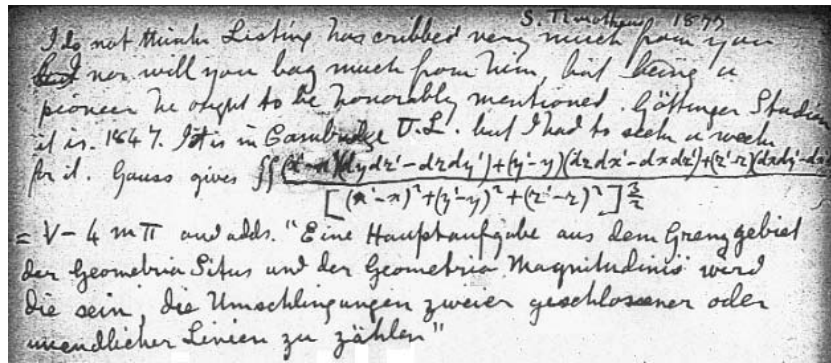 S. Timotheus 1877
I do not think Listing has cribbed very much from you
nor will you bag much from him, but being a
pioneer he ought to be honorably mentioned. Göttinger Studien
it is. 1847. It is in Cambridge U.L. but I had to seek a week
for it. Gauss gives ∬ (x'-x)(dydz'-dzdy')+(y'-y)(dzdx'-dxdz')+(z'-z)(dxdy'-dx
[(x'-x)²+(y'-y)²+(z'-z)²]^{3/2}
= V - 4mπ and adds. "Eine Hauptaufgabe aus dem Grenzgebiet
der Geometria Situs und der Geometria Magnitudinis wird
die sein, die Umschlingungen zweier geschlossener oder
unendlicher Linien zu zählen"